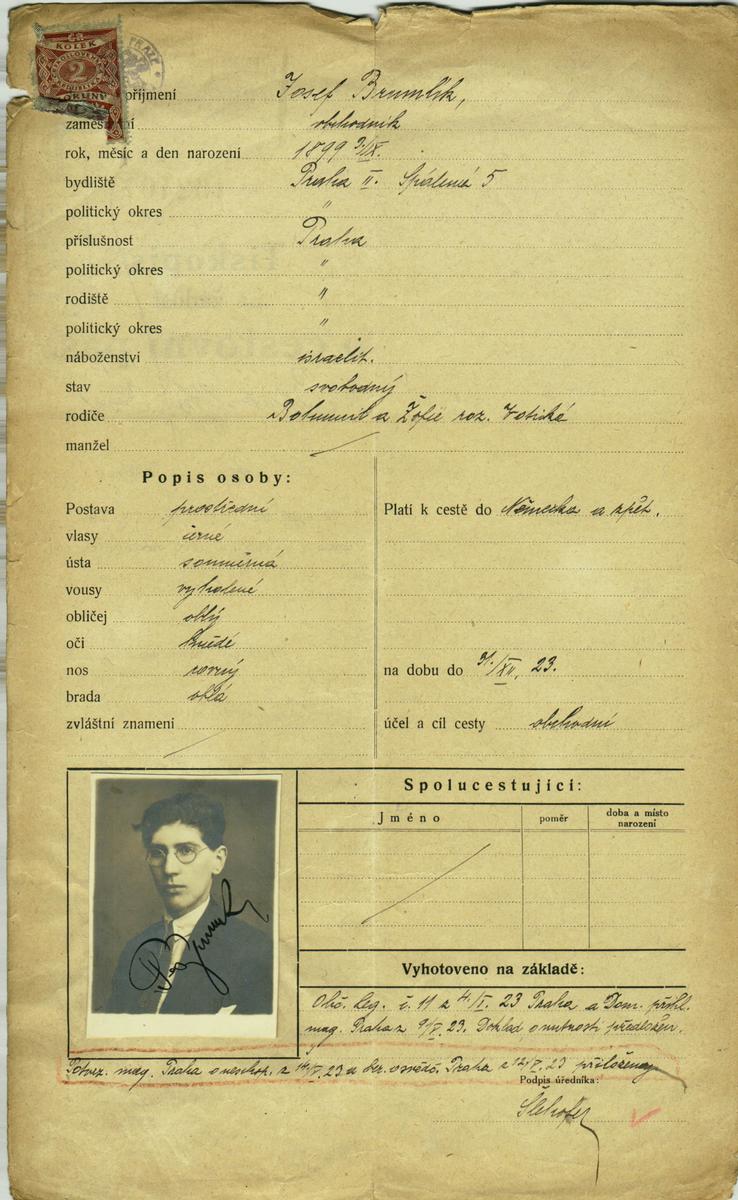 KOLEK
2
příjmení Josef Brumlík,
zaměs ní obchodník
rok, měsíc a den narození 1899 9/IX.
bydliště Praha II. Spálená 5
politický okres "
příslušnost Praha
politický okres "
rodiště "
politický okres "
náboženství israelit.
stav svobodný
rodiče Bohumil a Žofie roz. Votické
manžel
Popis osoby:
Postava prostřední
vlasy černé
ústa souměrná
vousy vyholené
obličej oblý
oči hnědé
nos rovný
brada oblá
zvláštní znamení
Platí k cestě do Německa a zpět.
na dobu do /XII. 23.
účel a cíl cesty obchodní
Spolucestující:
Jméno poměr doba a místo
narození
Vyhotoveno na základě:
Obč. leg. č. 11 z 4/I. 23 Praha a Dom. přihl.
mag. Praha z 9/V. 23. Doklad o nutnosti předložen.
Potvrz. mag. Praha o neschop. z 14/V. 23 a ber. osvědč. Praha z 12/V. 23 přiloženy
Podpis úředníka: